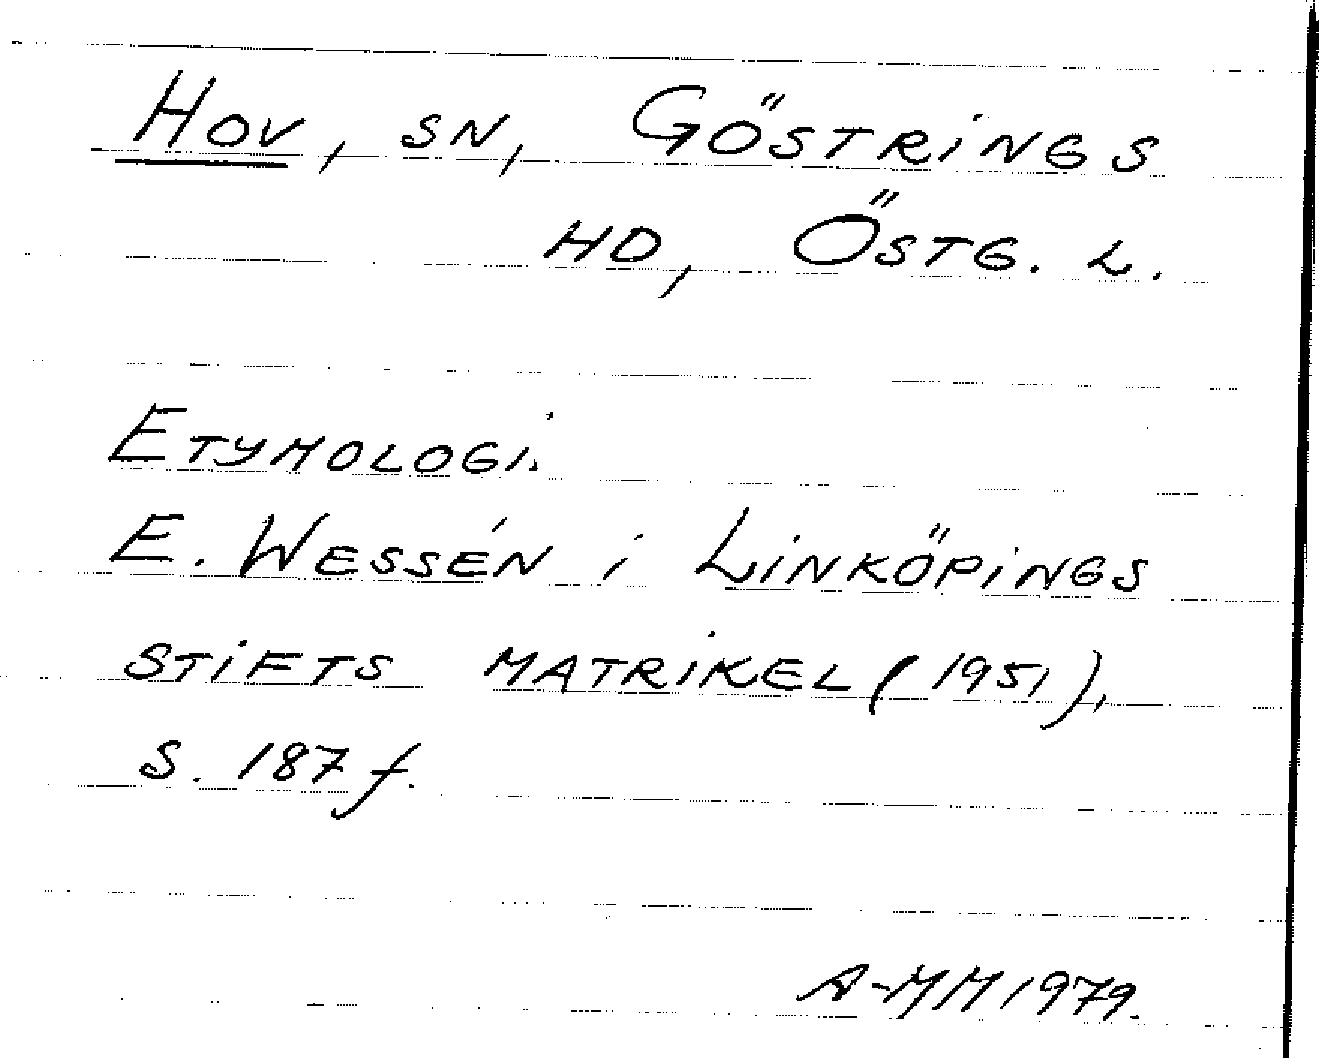 Hov, sn, Göstrings
hd, Östg. L.
Etymologi.
E. Wessén i Linköpings
stifts matrikel (1951),
s. 187 f.
A-MM 1979.